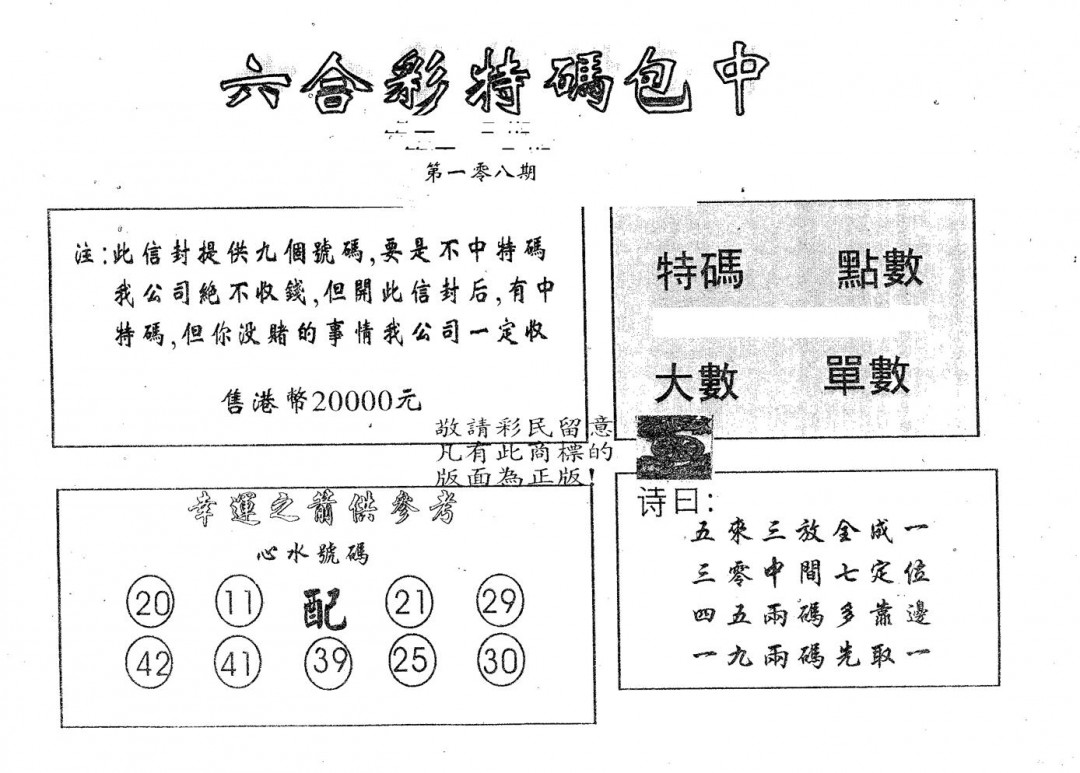 六合彩特碼包中
第一零八期
注:此信封提供九個號碼,要是不中特碼
我公司絶不收錢,但開此信封后,有中
特碼,但你没賭的事情我公司一定收
售港幣20000元
特碼 點數
大數 單數
敬請彩民留意
凡有此商標的
版面為正版!
幸運之箭供參考
心水號碼
20 11 配 21 29
42 41 39 25 30
诗曰:
五來三放全成一
三零中間七定位
四五兩碼多靠邊
一九兩碼先取一